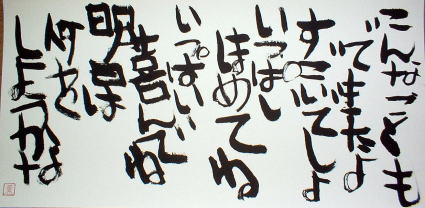 こんなことも
できたよ
すごいでしょ
いっぱい
ほめてね
いっぱい
喜んでね
明日は
何を
しようかな